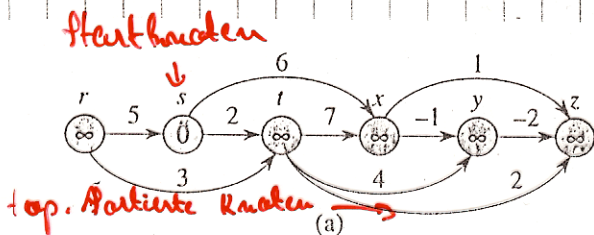 Startknoten
6
1
r s t x y z
5 2 7 −1 −2
∞ 0 ∞ ∞ ∞ ∞
3 4 2
top. sortierte Knoten
(a)